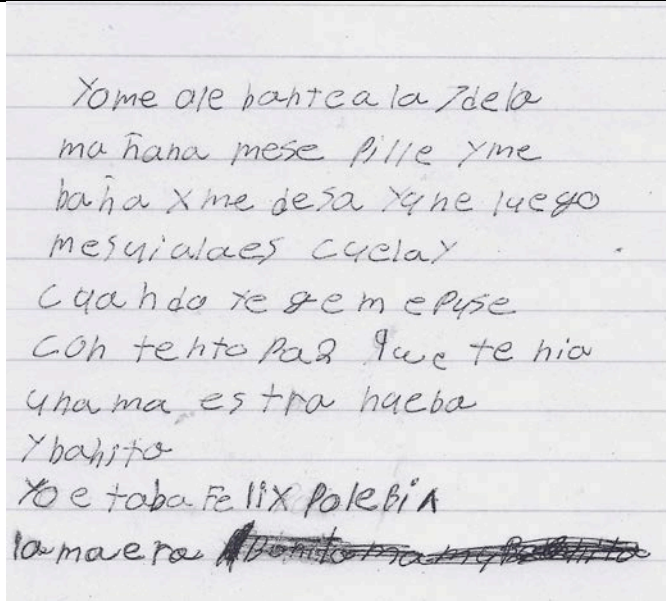 Yo me ale bantea la 7 dela
ma ñana mese pille y me
baña y me desa yune luego
mesuialaes cuela y
cuando yegem epuse
con tento paz que te nia
una ma es tra nueba
y bonito
Yo e taba Felix PoleBiA
la maera